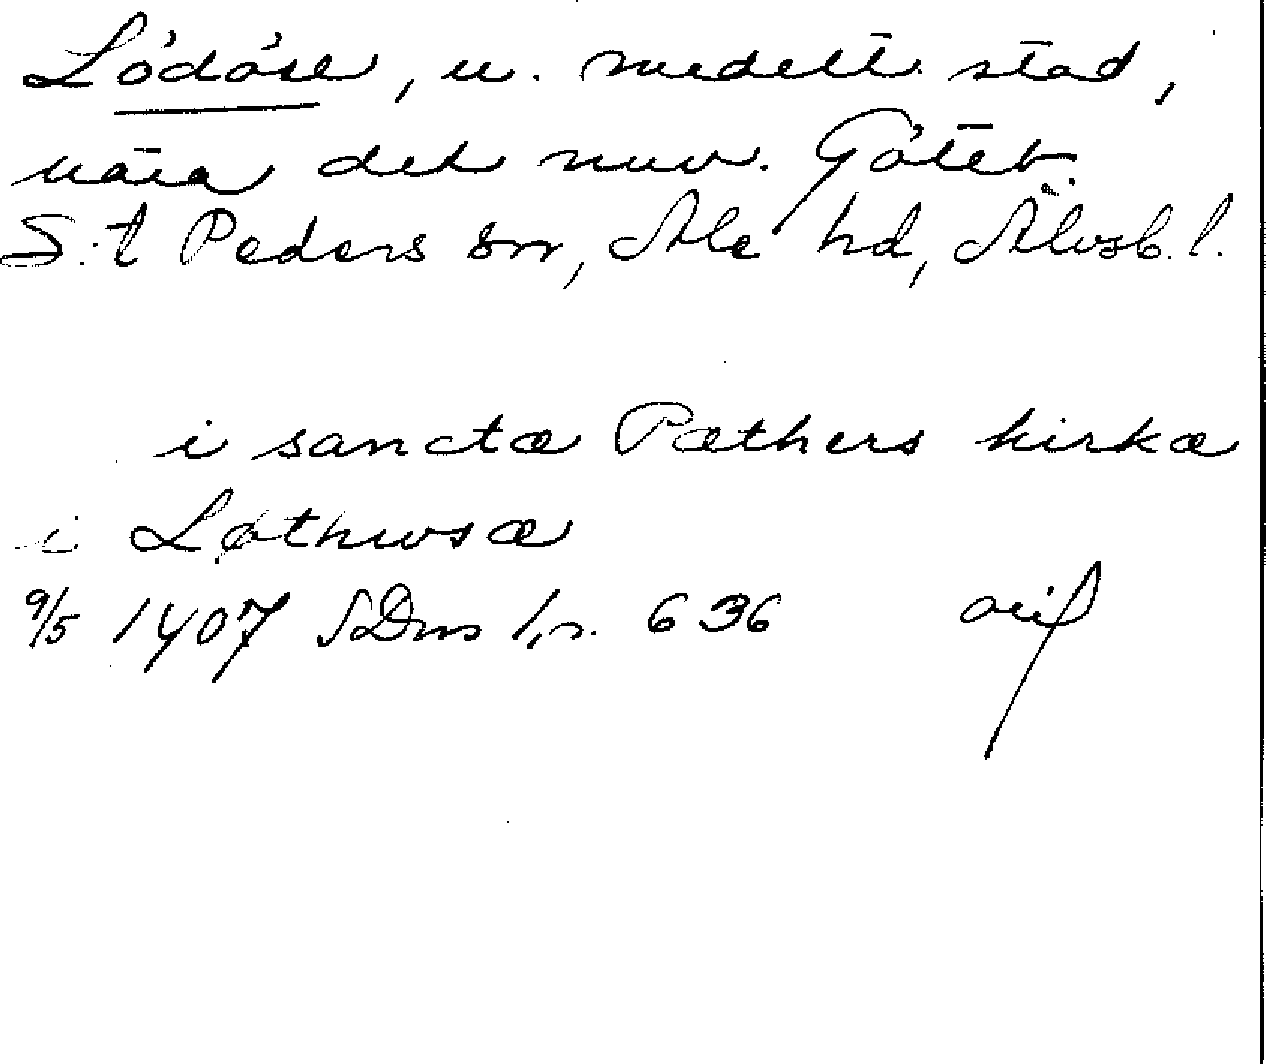 Lödöse, u. medelt. stad,
nära det nuv. Göteb.
S:t Peders sn, Ale hd, Älvsb. l.
i sanctæ Pæthers kirkæ
i Løthwsæ
9/5 1407 SDns 1, s. 636 orig